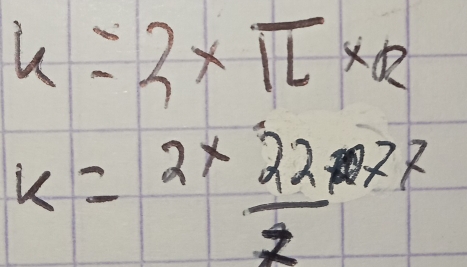 k = 2 × π × r
k = 2 × 22/7 × 77